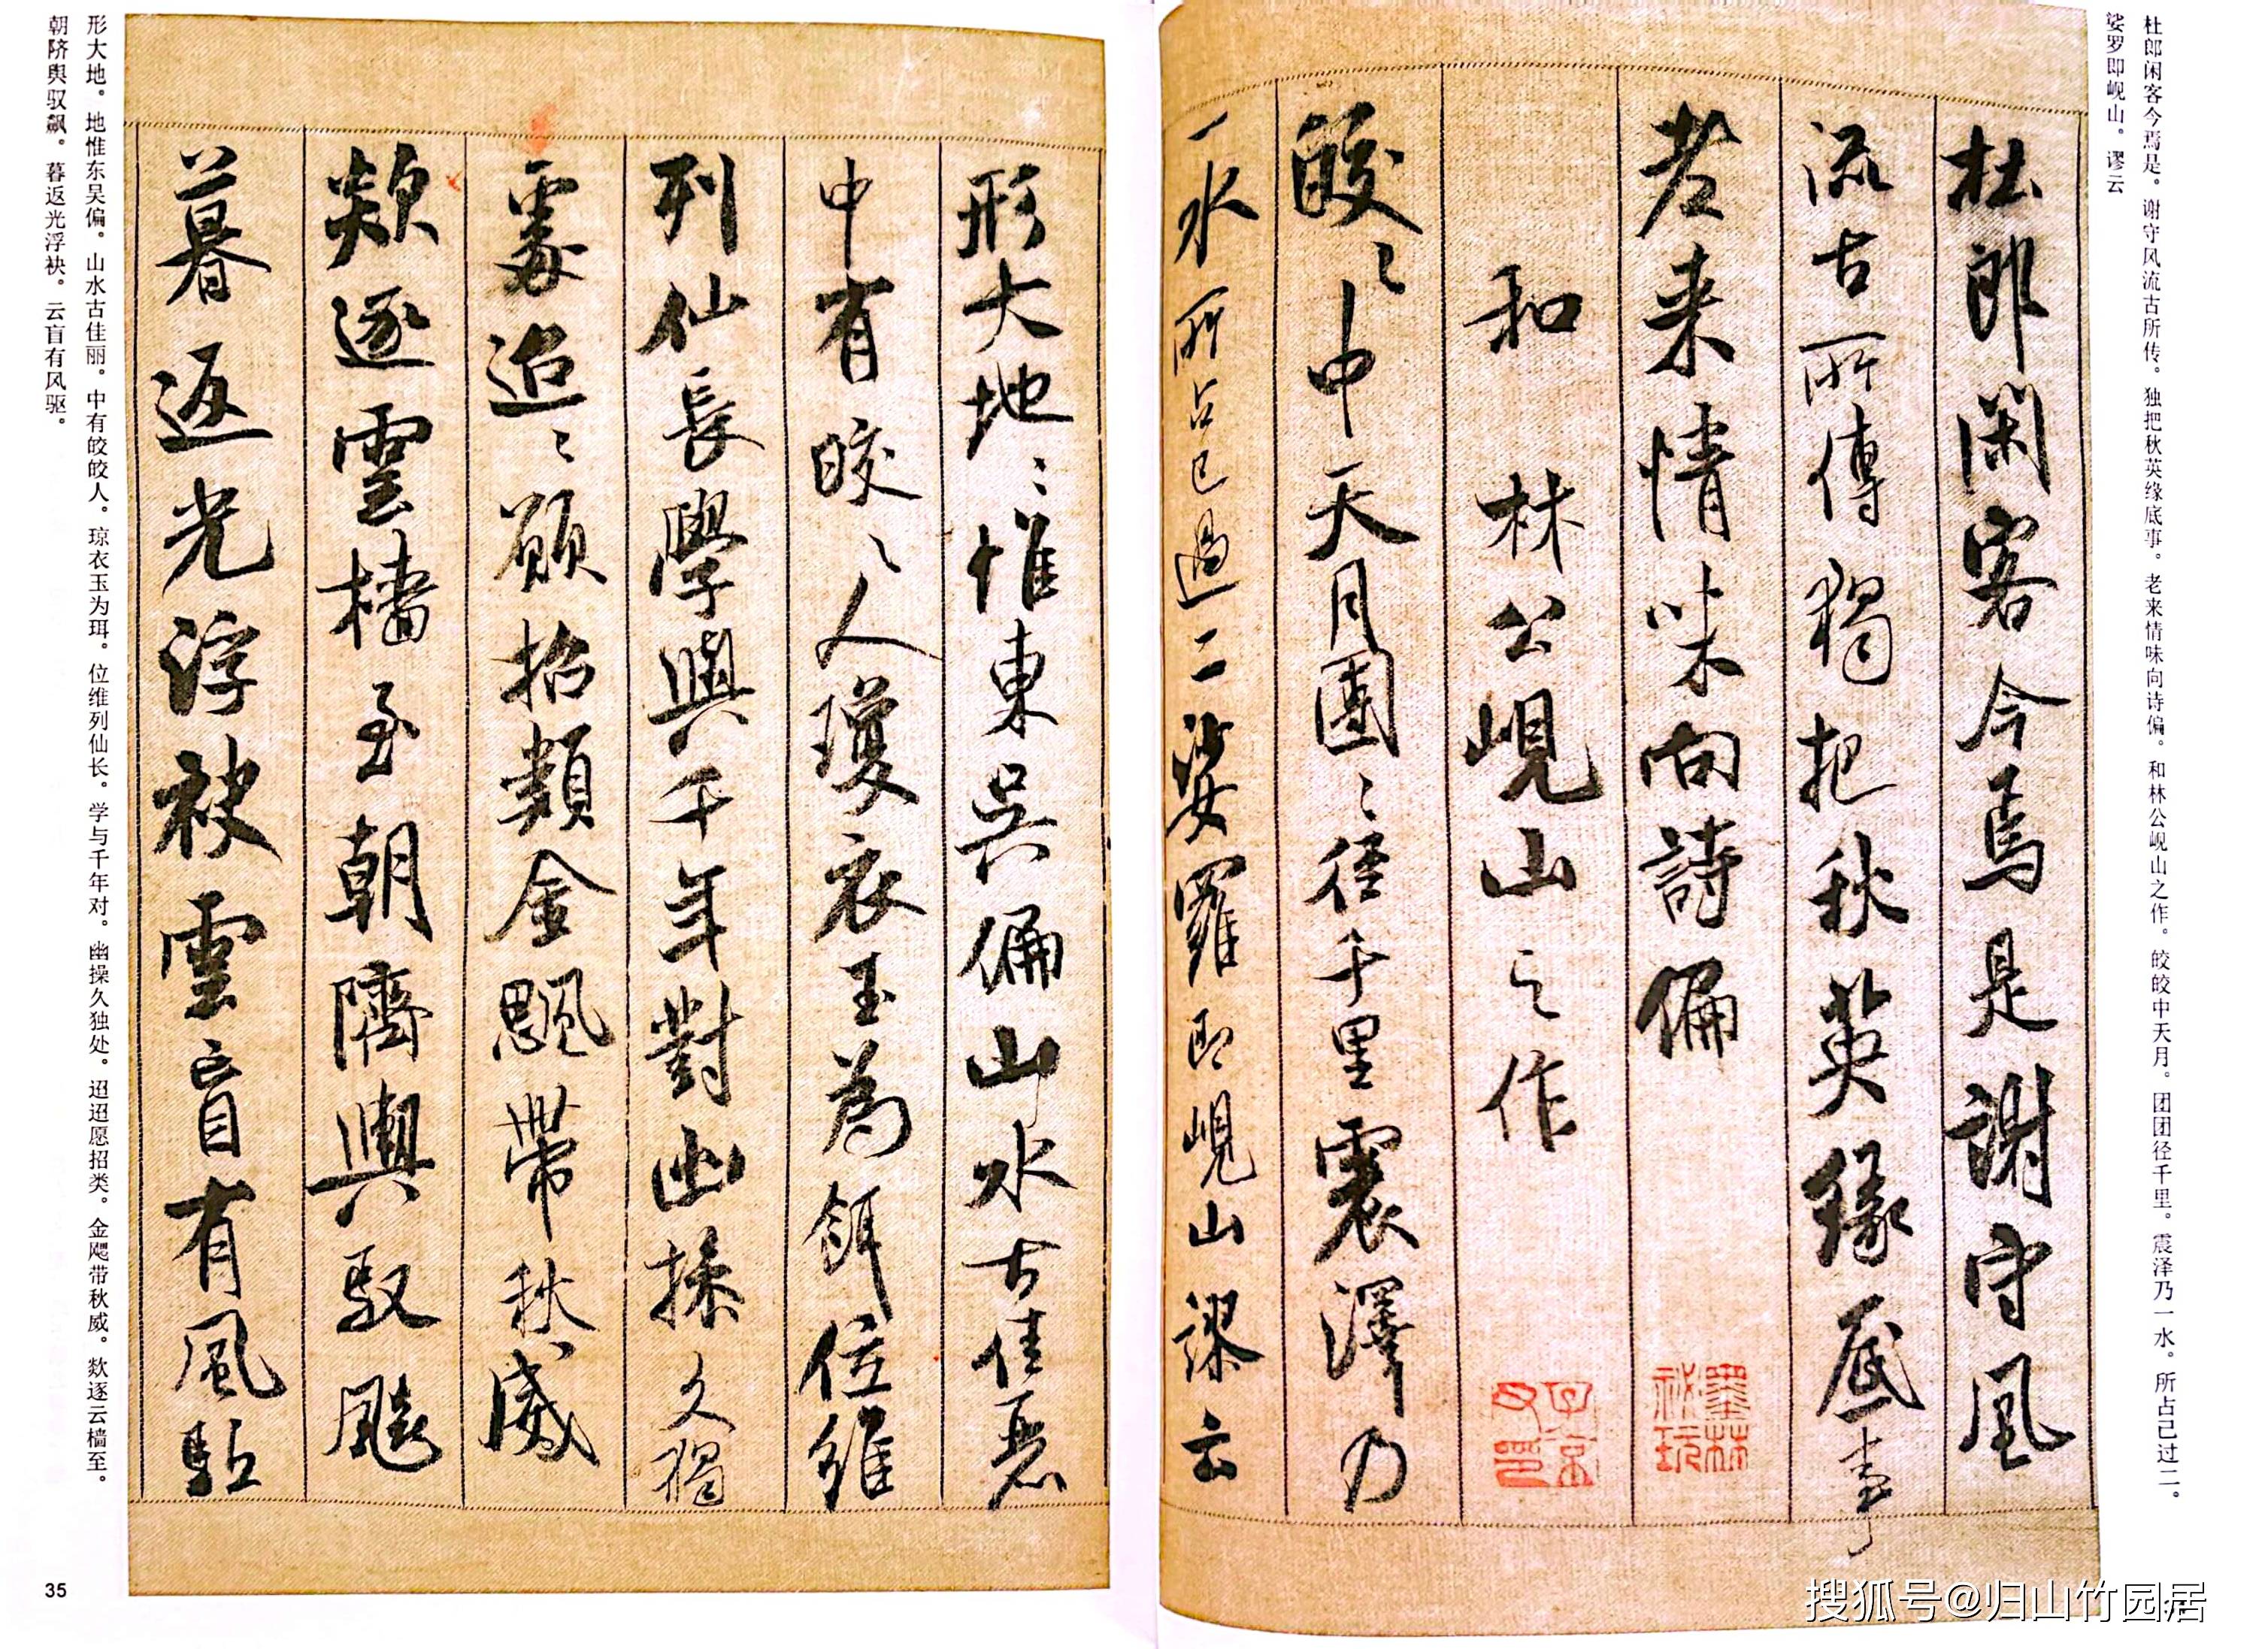 杜郎闲客今焉是。谢守风流古所传。独把秋英缘底事。老来情味向诗偏。和林公岘山之作。皎皎中天月。团团径千里。震泽乃一水。所占已过二。
娑罗即岘山。谬云
杜郎閑客今焉是謝守風
流古所傳獨把秋英緣底事
老来情味向詩偏
和林公峴山之作
皎〻中天月團〻徑千里震澤乃
一水所占已過二娑羅即峴山謬云
墨林
祕玩
子京
父印
形大地〻惟東吳偏山水古佳麗
中有皎〻人瓊衣玉為餌位維
列仙長學與千年對幽操久獨
處迢〻願招類金颸帶秋威
欻逐雲檣至朝隮輿馭飈
暮返光浮袂雲盲有風駈
形大地。地惟东吴偏。山水古佳丽。中有皎皎人。琼衣玉为珥。位维列仙长。学与千年对。幽操久独处。迢迢愿招类。金飔带秋威。欻逐云樯至。
朝隮舆驭飙。暮返光浮袂。云盲有风驱。
35
搜狐号@归山竹园居